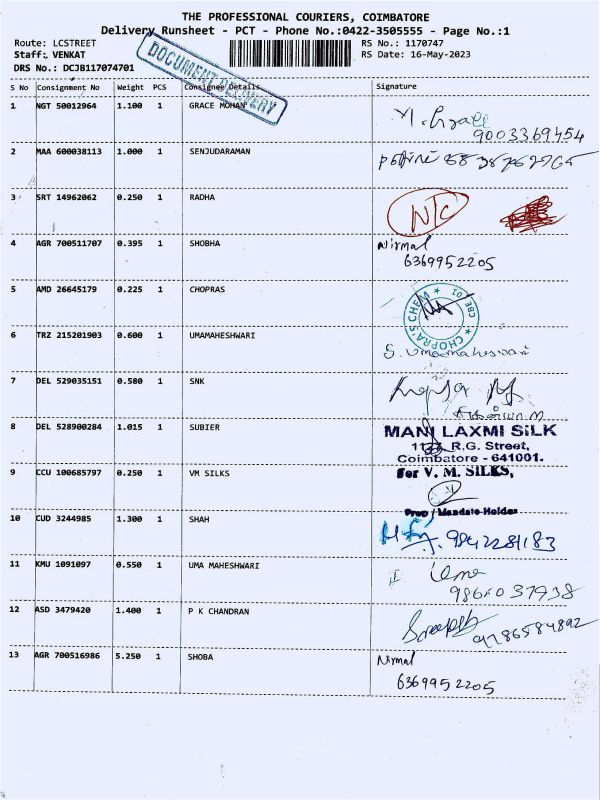 THE PROFESSIONAL COURIERS, COIMBATORE
Delivery Runsheet - PCT - Phone No.:0422-3505555 - Page No.:1
Route: LCSTREET RS No.: 1170747
Staff: VENKAT RS Date: 16-May-2023
DRS No.: DCJB117074701
DOCUMENT DELIVERY
S No Consignment No Weight PCS Consignee Details Signature
1 NGT 50012964 1.100 1 GRACE MOHAN
9003369454
2 MAA 600038113 1.000 1 SENJUDARAMAN
3 SRT 14962062 0.250 1 RADHA NTC
4 AGR 700511707 0.395 1 SHOBHA Nirmal
6369952205
5 AMD 26645179 0.225 1 CHOPRAS
CHOPRA'S CHEM ★ CBE 01 ★
6 TRZ 215201903 0.600 1 UMAMAHESHWARI
S. Umamaheswari
7 DEL 529035151 0.580 1 SNK
8 DEL 528900284 1.015 1 SUBIER MANI LAXMI SILK
R.G. Street,
Coimbatore - 641001.
9 CCU 100685797 0.250 1 VM SILKS for V. M. SILKS,
Prop / Mandate Holder
10 CUD 3244985 1.300 1 SHAH
9842281183
11 KMU 1091097 0.550 1 UMA MAHESHWARI Uma
9865037938
12 ASD 3479420 1.400 1 P K CHANDRAN
9786584892
13 AGR 700516986 5.250 1 SHOBA Nirmal
6369952205